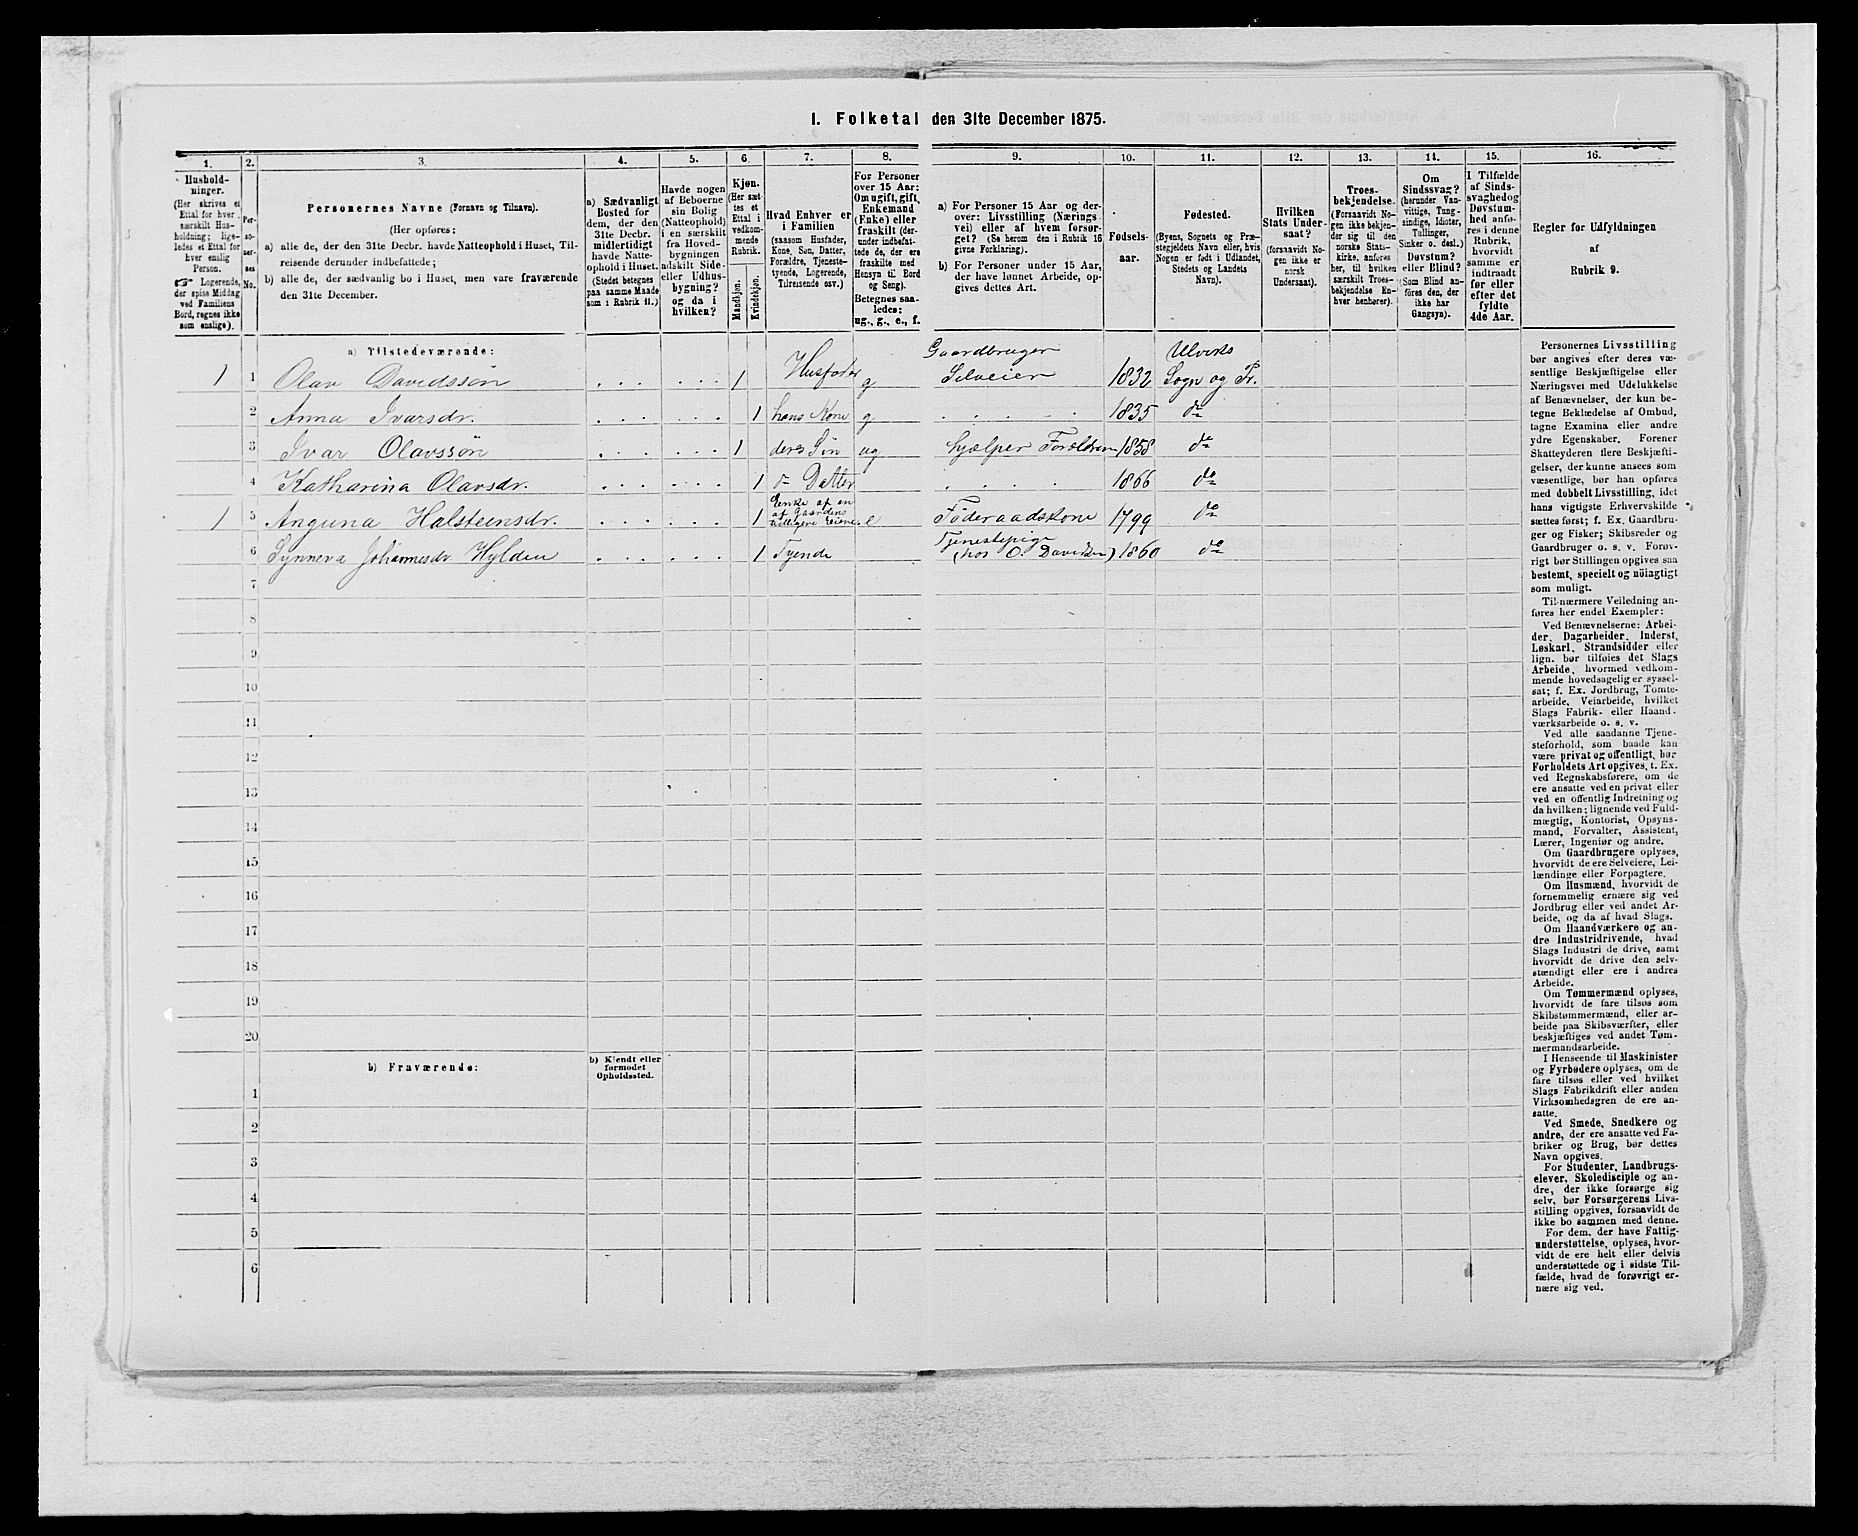 I. Folketal den 31te December 1875.
1. 2. 3. 4. 5. 6. 7. 8. 9. 10. 11. 12. 13. 14. 15. 16.
Hushold-
ninger.
(Her skrives et
Ettal for hver
særskilt Hus-
holdning; lige-
ledes et Ettal for
hver enslig
Person.
☞ Logerende,
der spise Middag
ved Familiens
Bord, regnes ikke
som enslige).
Per-
so-
ner-
nes
No.
Personernes Navne (Fornavn og Tilnavn).
(Her opføres:
a) alle de, der den 31te Decbr. havde Natteophold i Huset, Til-
reisende derunder indbefattede;
b) alle de, der sædvanlig bo i Huset, men vare fraværende
den 31te December.
a) Sædvanligt
Bosted for
dem, der den
31te Decbr.
midlertidigt
havde Natte-
ophold i Huset.
(Stedet betegnes
paa samme Maade
som i Rubrik 11.)
Havde nogen
af Beboerne
sin Bolig
(Natteophold)
i en særskilt
fra Hoved-
bygningen
adskilt Side-
eller Udhus-
bygning?
og da i
hvilken?
Kjøn.
(Her sæt-
tes et
Ettal i
vedkom-
mende
Rubrik.
Mandkjøn.
Kvindekjøn.
Hvad Enhver er
i Familien
(saasom Husfader,
Kone, Søn, Datter,
Forældre, Tjeneste-
tyende, Logerende,
Tilreisende osv.)
For Personer
over 15 Aar:
Om ugift, gift,
Enkemand
(Enke) eller
fraskilt (der-
under indbefat-
tede de, der ere
fraskilte med
Hensyn til Bord
og Seng).
Betegnes saa-
ledes:
ug., g., e., f.
a) For Personer 15 Aar og der-
over: Livsstilling (Nærings-
vei) eller af hvem forsør-
get? (Se herom den i Rubrik 16
givne Forklaring).
b) For Personer under 15 Aar,
der have lønnet Arbeide, op-
gives dettes Art.
Fødsels-
aar.
Fødested.
(Byens, Sognets og Præ-
stegjeldets Navn eller, hvis
Nogen er født i Udlandet,
Stedets og Landets
Navn).
Hvilken
Stats Under-
saat?
(forsaavidt No-
gen ikke er
norsk
Undersaat).
Troes-
bekjendelse.
(Forsaavidt No-
gen ikke bekjen-
der sig til den
norske Stats-
kirke, anføres
her, til hvilken
særskilt Troes-
bekjendelse En-
hver henhører).
Om
Sindssvag?
(herunder Van-
vittige, Tung-
sindige, Idioter,
Tullinger,
Sinker o. desl.)
Døvstum?
eller Blind?
(Som Blind an-
føres den, der
ikke har
Gangsyn).
I Tilfælde
af Sinds-
svaghed og
Døvstum-
hed anfø-
res i denne
Rubrik,
hvorvidt
samme er
indtraadt
før eller
efter det
fyldte
4de Aar.
Regler for Udfyldningen
af
Rubrik 9.
a) Tilstedeværende:
1 1 Olav Davidssøn 1 Husfader g Gaardbruger Selveier 1832 Ulviks Sogn og Pr.
2 Anna Ivarsdr. 1 hans Kone g 1835 do
3 Ivar Olavssøn 1 deres Søn ug hjælper Forældrene 1858 do
4 Katharina Olavsdr. 1 do Datter 1866 do
1 5 Anguna Halsteinsdr. 1 Enke af en af Gaardens tidligere Eiere. e Föderaadskone 1799 do
6 Synneva Johannesdr Hylden 1 Tyende Tjenestepige (hos O. Davidsen) 1860 do
7
8
9
10
11
12
13
14
15
16
17
18
19
20
b) Fraværende:
b) Kjendt eller
formodet
Opholdssted.
1
2
3
4
5
6
Personernes Livsstilling
bør angives efter deres væ-
sentlige Beskjæftigelse eller
Næringsvei med Udelukkelse
af Benævnelser, der kun be-
tegne Beklædelse af Ombud,
tagne Examina eller andre
ydre Egenskaber. Forener
Skatteyderen flere Beskjæfti-
gelser, der kunne ansees som
væsentlige, bør han opføres
med dobbelt Livsstilling, idet
hans vigtigste Erhvervskilde
sættes først; f. Ex. Gaardbru-
ger og Fisker; Skibsreder og
Gaardbruger o. s. v. Forøv-
rigt bør Stillingen opgives saa
bestemt, specielt og nöiagtigt
som muligt.
Til nærmere Veiledning an-
føres her endel Exempler:
Ved Benævnelserne: Arbei-
der, Dagarbeider, Inderst,
Løskarl, Strandsidder eller
lign. bør tilføies det Slags
Arbeide, hvormed vedkom-
mende hovedsagelig er syssel-
sat; f. Ex. Jordbrug, Tomte-
arbeide, Veiarbeide, hvilket
Slags Fabrik- eller Haand-
værksarbeide o. s. v.
Ved alle saadanne Tjene-
steforhold, som baade kan
være privat og offentligt, bør
Forholdets Art opgives, t. Ex.
ved Regnskabsførere, om de
ere ansatte ved en privat eller
ved en offentlig Indretning og
da hvilken; lignende ved Fuld-
mægtig, Kontorist, Opsyns-
mand, Forvalter, Assistent,
Lærer, Ingeniør og andre.
Om Gaardbrugere oplyses,
hvorvidt de ere Selveiere, Lei-
lændinge eller Forpagtere.
Om Husmænd, hvorvidt de
fornemmelig ernære sig ved
Jordbrug eller ved andet Ar-
beide, og da af hvad Slags.
Om Haandværkere og an-
dre Industridrivende, hvad
Slags Industri de drive, samt
hvorvidt de drive den selv-
stændigt eller ere i andres
Arbeide.
Om Tømmermænd oplyses,
hvorvidt de fare tilsøs som
Skibstømmermænd, eller ar-
beide paa Skibsværfter, eller
beskjæftiges ved andet Tøm-
mermandsarbeide.
I Henseende til Maskinister
og Fyrbødere oplyses, om de
fare tilsøs eller ved hvilket
Slags Fabrikdrift eller anden
Virksomhedsgren de ere an-
satte.
Ved Smede, Snedkere og
andre, der ere ansatte ved Fa-
briker og Brug, bør dettes
Navn opgives.
For Studenter, Landbrugs-
elever, Skoledisciple og an-
dre, der ikke forsørge sig
selv, bør Forsørgerens Livs-
stilling opgives, forsaavidt de
ikke bo sammen med denne.
For dem, der have Fattig-
understøttelse, oplyses, hvor-
vidt de ere helt eller delvis
understøttede og i sidste Til-
fælde, hvad de forøvrigt er-
nære sig ved.